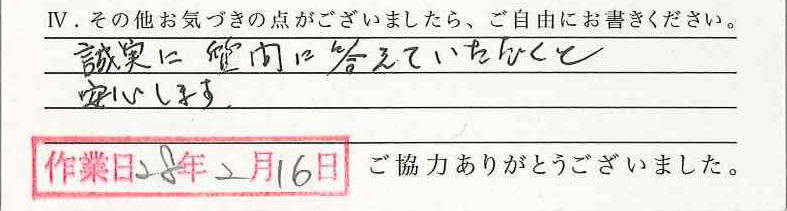 Ⅳ．その他お気づきの点がございましたら、ご自由にお書きください。
誠実に質問に答えていただくと
安心します。
作業日28年2月16日
ご協力ありがとうございました。